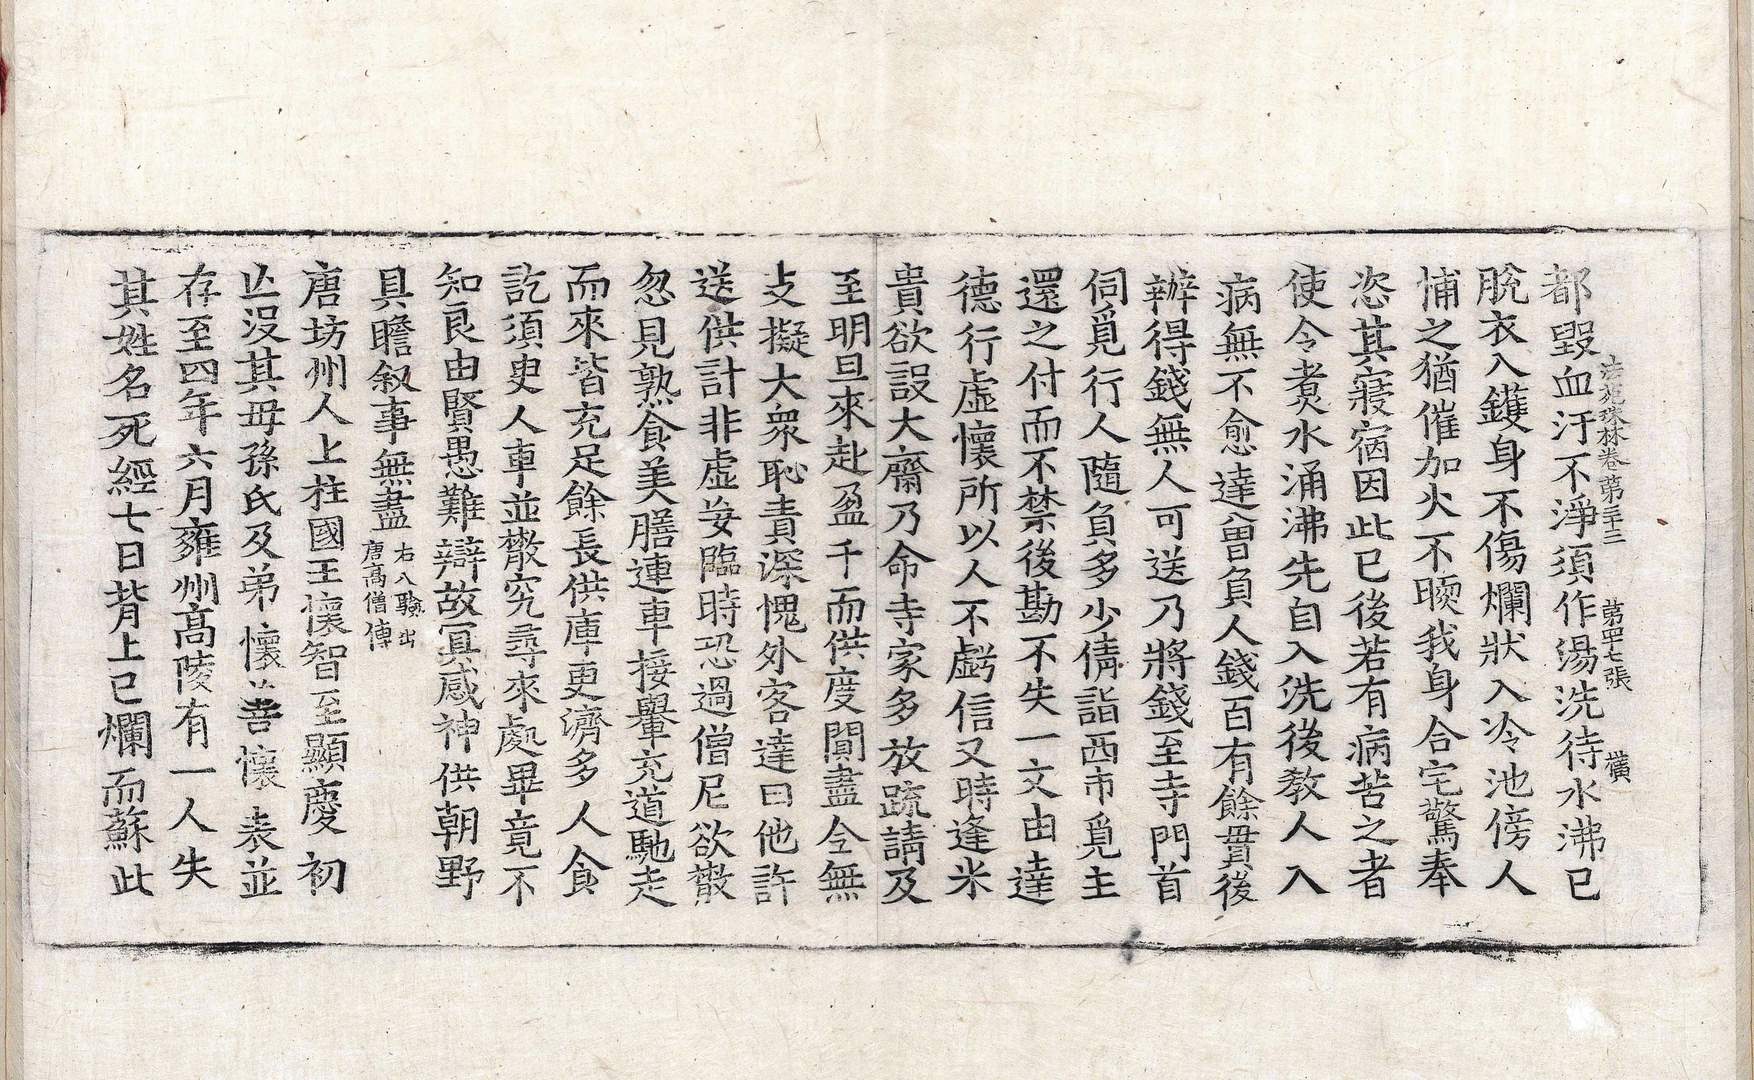 法苑珠林卷第三十三　第四十七張　橫
都毀血汙不淨須作湯洗待水沸已
脫衣入鑊身不傷爛狀入冷池傍人
怖之猶催加火不暖我身合宅驚奉
恣其寢宿因此已後若有病苦之者
使令煮水涌沸先自入洗後教人入
病無不愈達曾負人錢百有餘貫後
辦得錢無人可送乃將錢至寺門首
伺覓行人隨負多少倩詣西市覓主
還之付而不禁後勘不失一文由達
德行虛懷所以人不虧信又時逢米
貴欲設大齋乃命寺家多放疏請及
至明旦來赴盈千而供度闃盡令無
支擬大衆恥責深愧外客達曰他許
送供計非虛妄臨時恐過僧尼欲散
忽見熟食美膳連車接轝充道馳走
而來皆充足餘長供庫更濟多人食
訖須臾人車並散究尋來處畢竟不
知良由賢愚難辯故冥感神供朝野
具瞻叙事無盡右八驗出唐高僧傳
唐坊州人上柱國王懷智至顯慶初
亡沒其母孫氏及弟懷善懷表並
存至四年六月雍州高陵有一人失
其姓名死經七日背上已爛而蘇此